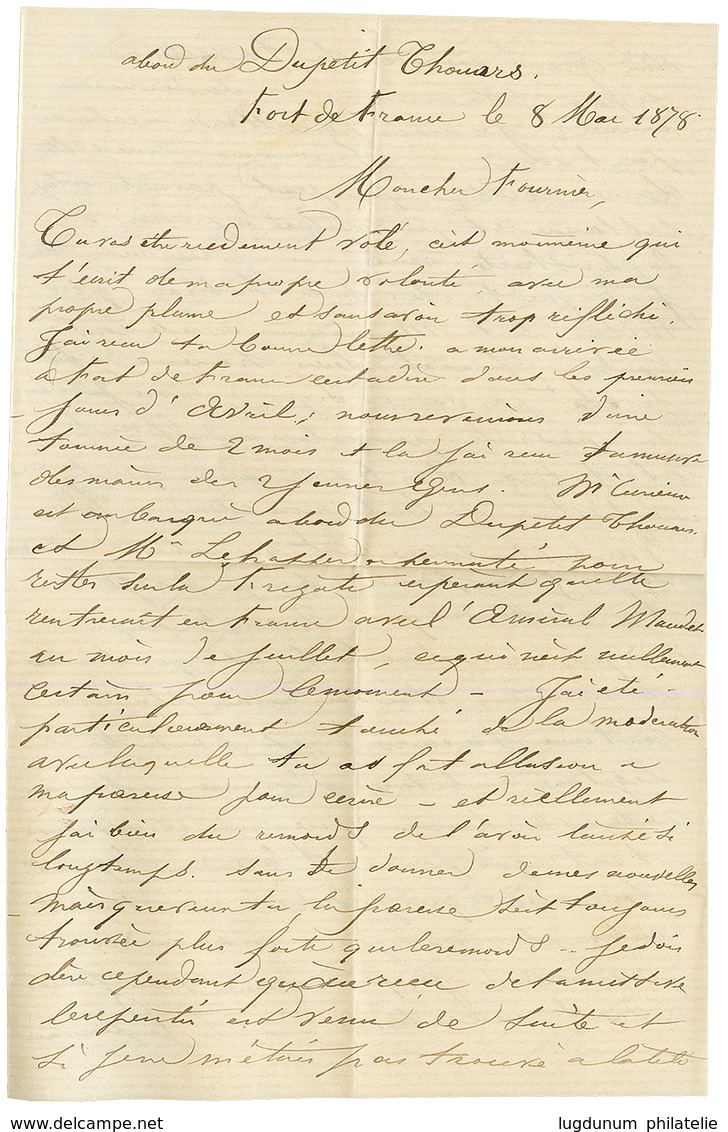 abord du Dupetit Thouars.
Fort de France le 8 Mai 1878
Mon cher Fournier,
Tu vas être rudement volé, c'est moi même qui
t'écrit de ma propre volonté avec ma
propre plume et sans avoir trop réfléchi.
J'ai reçu ta bonne lettre à mon arrivée
à Fort de France c'est à dire dans les premiers
jours d'Avril; nous revenions d'une
tournée de 2 mois et là j'ai reçu ta missive
des mains des 2 jeunes gens. Mr
est embarqué abord du Dupetit Thouars
et Mr pour
rester sur la Frégate espérant qu'elle
rentrerait en France avec l'Amiral Maudet
au mois de Juillet, ce qui n'est nullement
certain pour le moment - J'ai été
particulièrement touché de la modération
avec laquelle tu as fait allusion a
ma paresse pour écrire - et réellement
j'ai bien du remords de t'avoir laissé si
longtemps sans te donner de mes nouvelles
mais que veux tu la paresse s'est toujours
trouvée plus forte que le remords - je dois
dire cependant qu'au reçu de ta missive
le repentir est venu de suite et
si je ne m'étais pas trouvé a la tête
delcampe.net
lugdunum philatelie